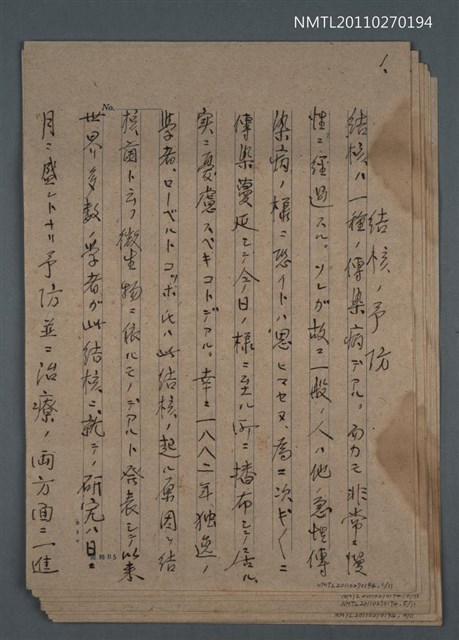 NMTL20110270194
1.
No.
結核ノ予防
結核ハ一種ノ傳染病デアル。而カモ非常ニ慢
性ニ經過スル。ソレガ故ニ一般ノ人ハ他ノ急性傳
染病ノ様ニ恐イトハ思ヒマセヌ。為ニ次ギ〱ニ
傳染蔓延シテ今日ノ様ニ至ル所ニ播布シテ居ル。
実ニ憂慮スベキコトデアル。幸ニ一八八二年独逸ノ
学者、ローベルトコッホ氏ハ此結核ノ起ル原因ハ結
核菌ト云フ微生物ニ依ルモノデアルト発表シテ以来
世界多数ノ学者ガ此結核ニ就テノ研究ハ日ニ
月ニ盛ントナリ予防並ニ治療ノ両方面ニ一進
NMTL20110270194
NMTL20110270194
NMTL20110270194
NMTL20110270194